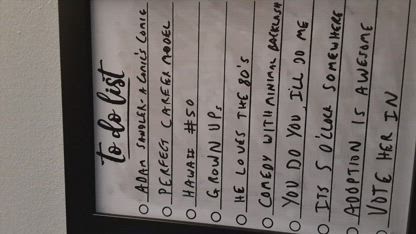 to do list
ADAM SANDLER - A COMIC'S COMIC
PERFECT CAREER MODEL
HAWAII #50
GROWN UPS
HE LOVES THE 80'S
COMEDY WITH MINIMAL BACKLASH
YOU DO YOU, I'LL DO ME
ITS 5 O'CLOCK SOMEWHERE
ADOPTION IS AWESOME
VOTE HER IN